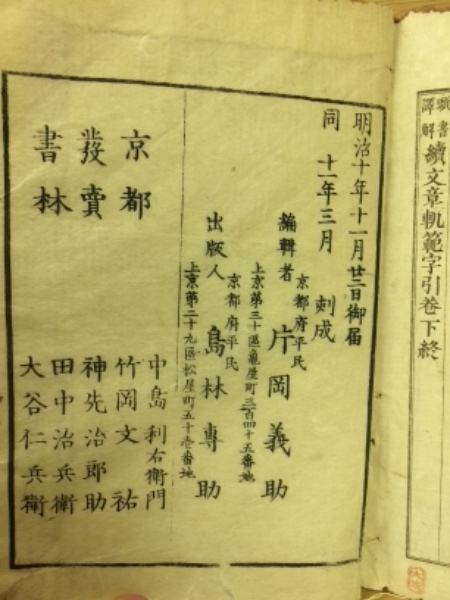 鼇書
譯解
續文章軌範字引卷下終
明治十年十一月廿三日御届
同 十一年三月 刻成
京都府平民
編輯者 片岡義助
上京第三十區龜屋町三百四十五番地
京都府平民
出版人 島林專助
上京第二十九區松屋町五十壱番地
京都
發賣
書林
中島利右衛門
竹岡文祐
神先治郎助
田中治兵衛
大谷仁兵衛